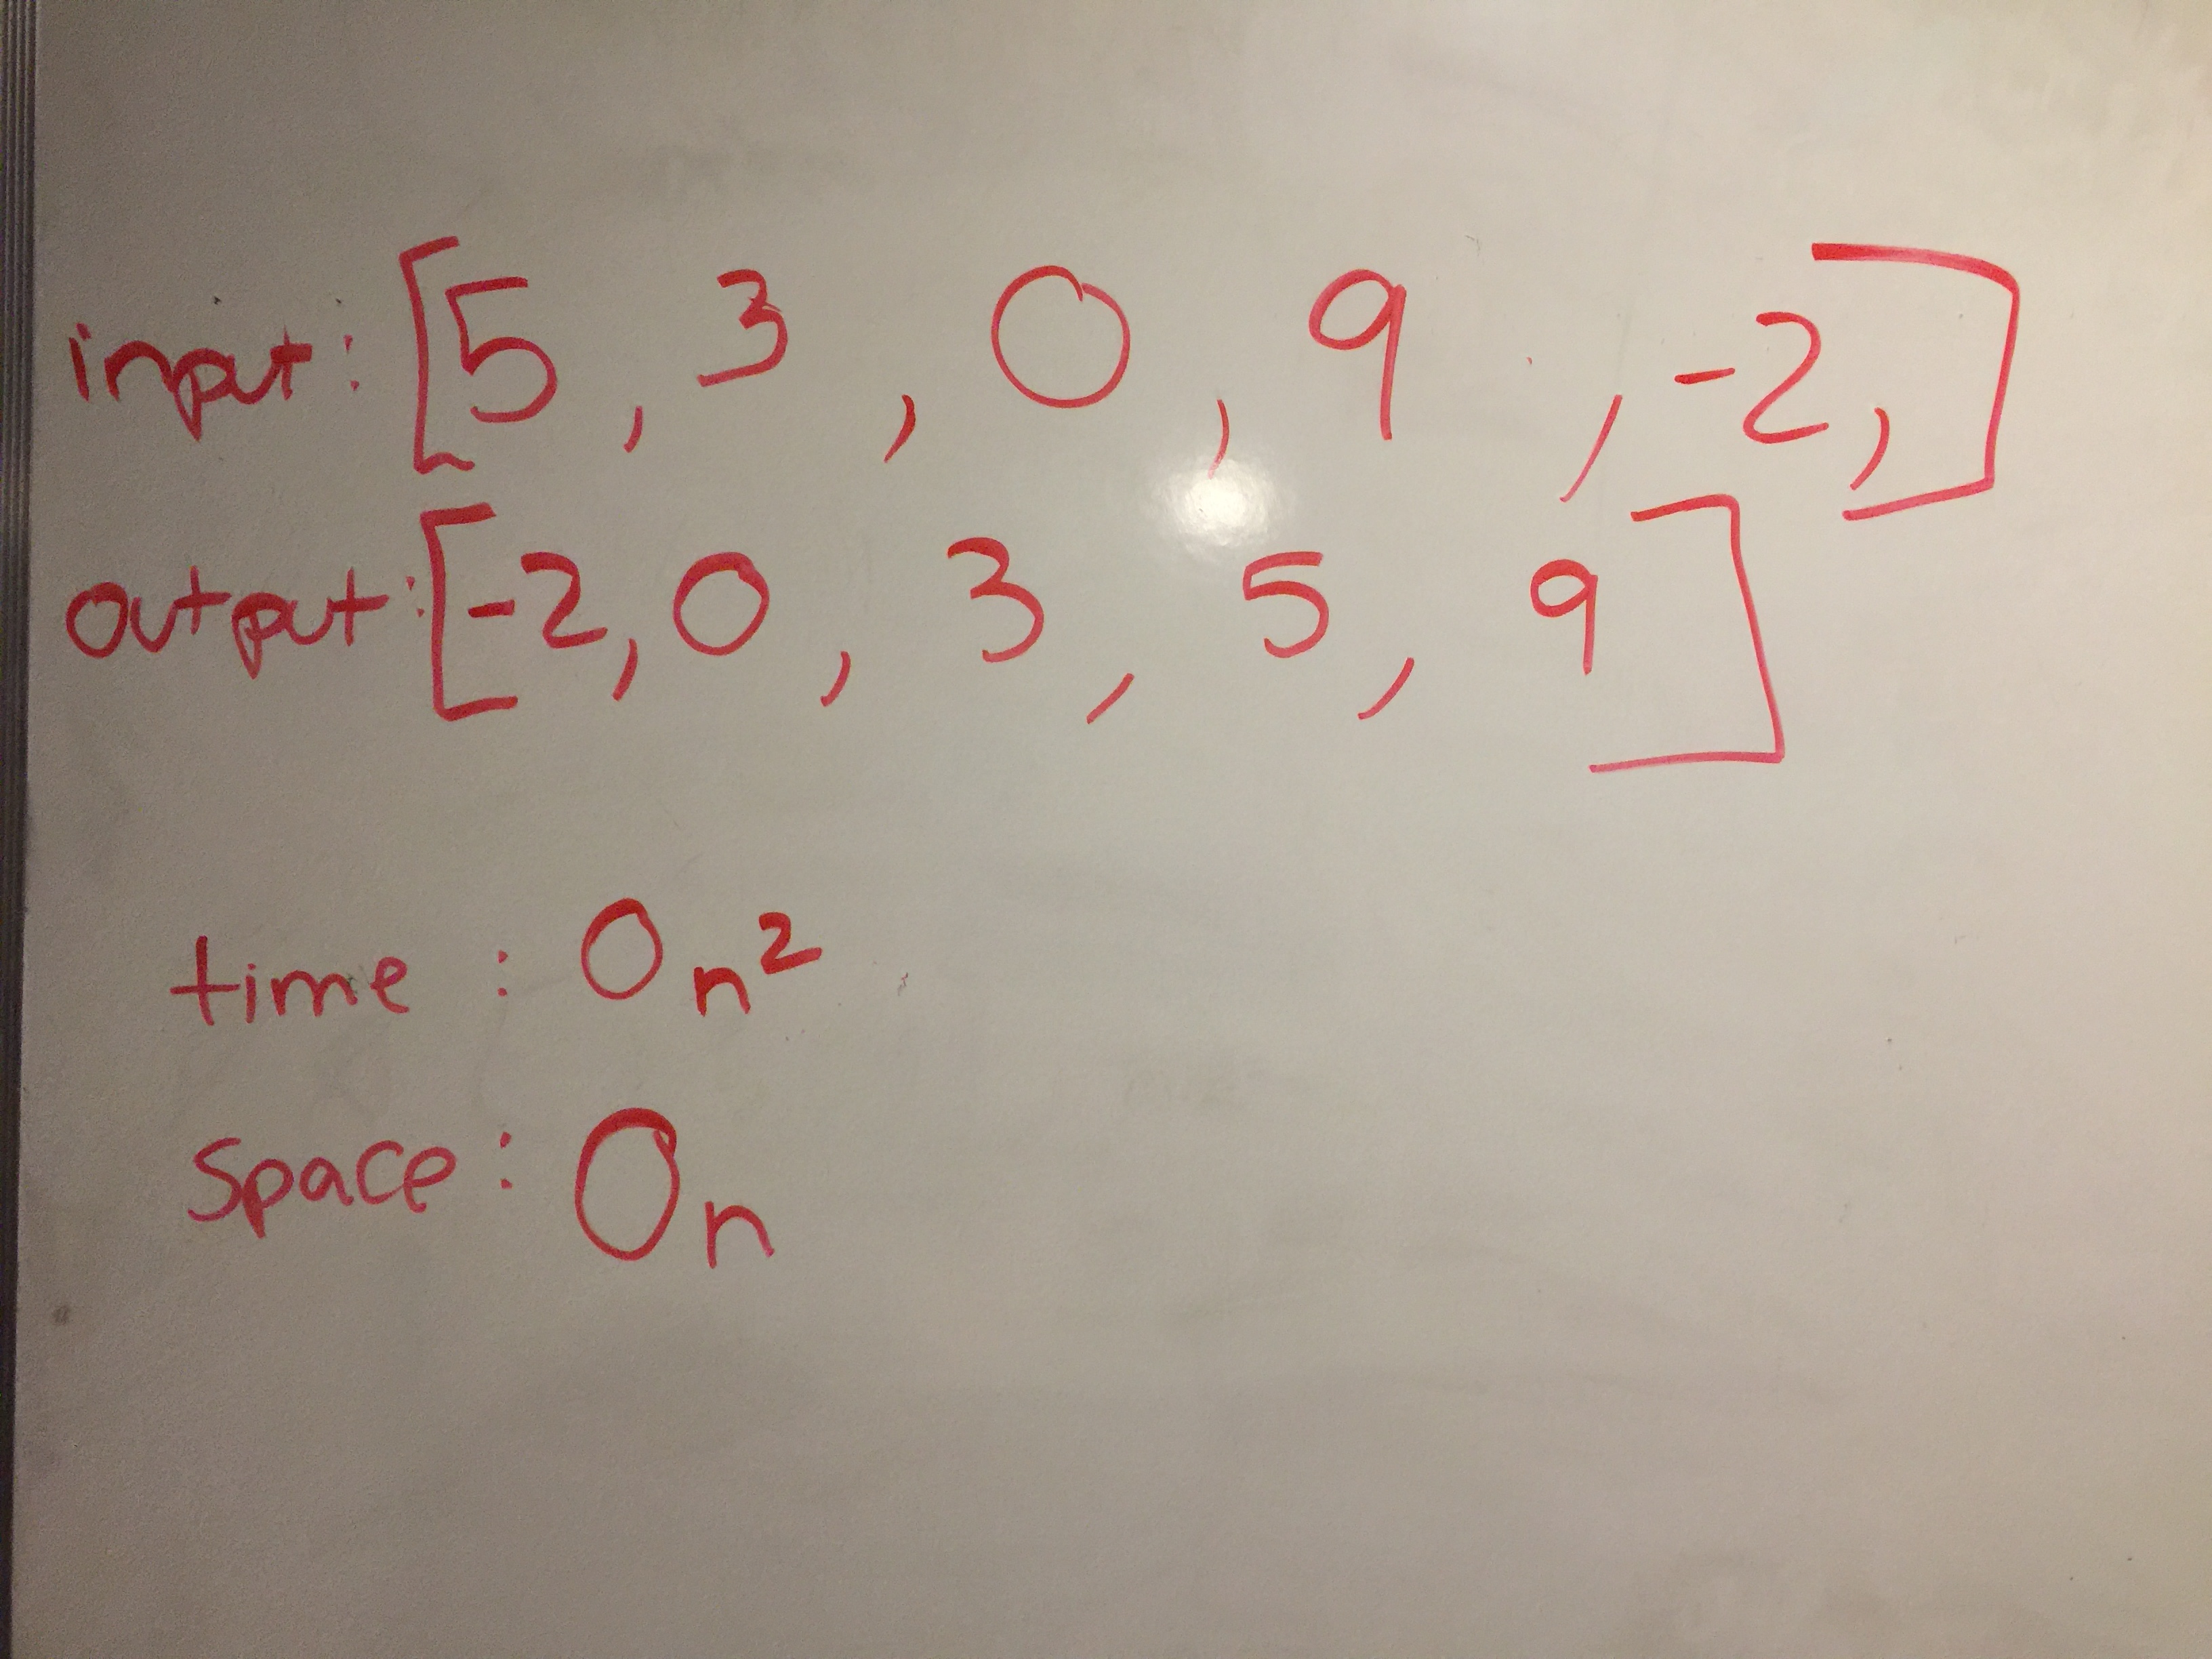 input: [5, 3, 0, 9, -2,]
output: [-2, 0, 3, 5, 9]
time: On²
Space: On